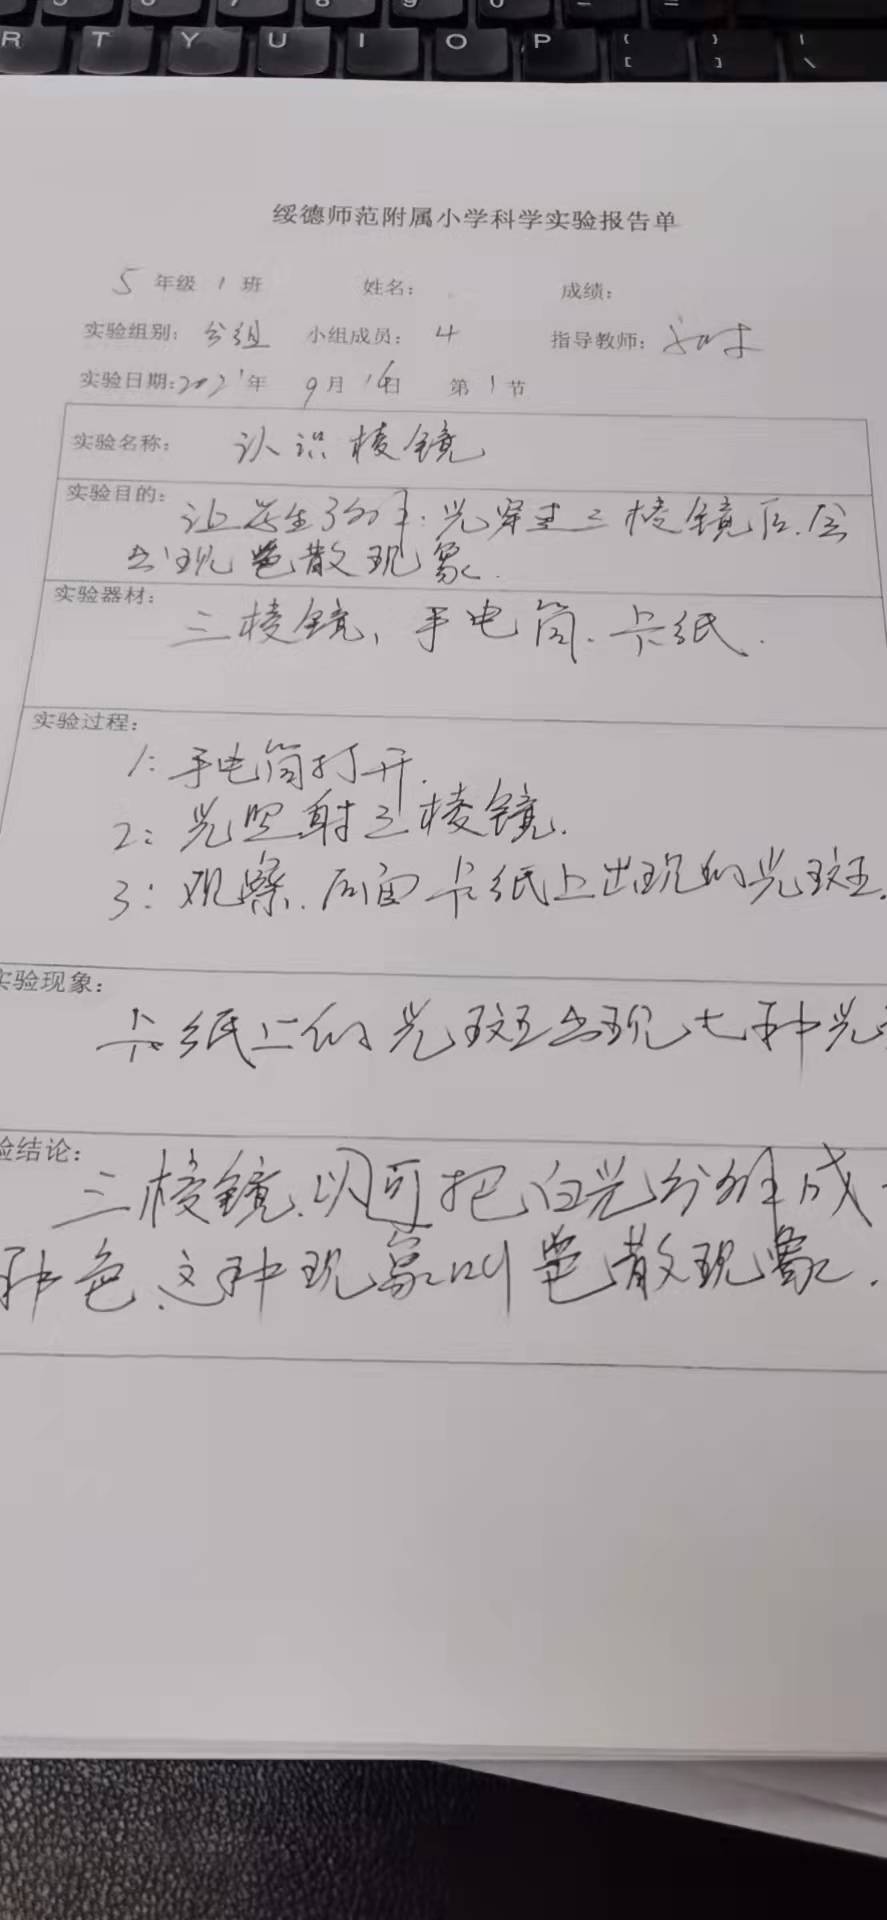 R T Y U I O P { [ } ] | \
绥德师范附属小学科学实验报告单
5 年级 1 班 姓名: 成绩:
实验组别: 分组 小组成员: 4 指导教师:
实验日期:2021年 9月 日 第 1 节
实验名称: 认识棱镜
实验目的: 让学生了解:光穿过三棱镜后.会
出现色散现象.
实验器材: 三棱镜、手电筒.卡纸.
实验过程:
1:手电筒打开.
2:光照射三棱镜.
3:观察.后面卡纸上出现的光斑.
实验现象:
卡纸上的光斑出现七种光
验结论:
三棱镜.可以把白光分解成
种色、这种现象叫色散现象.